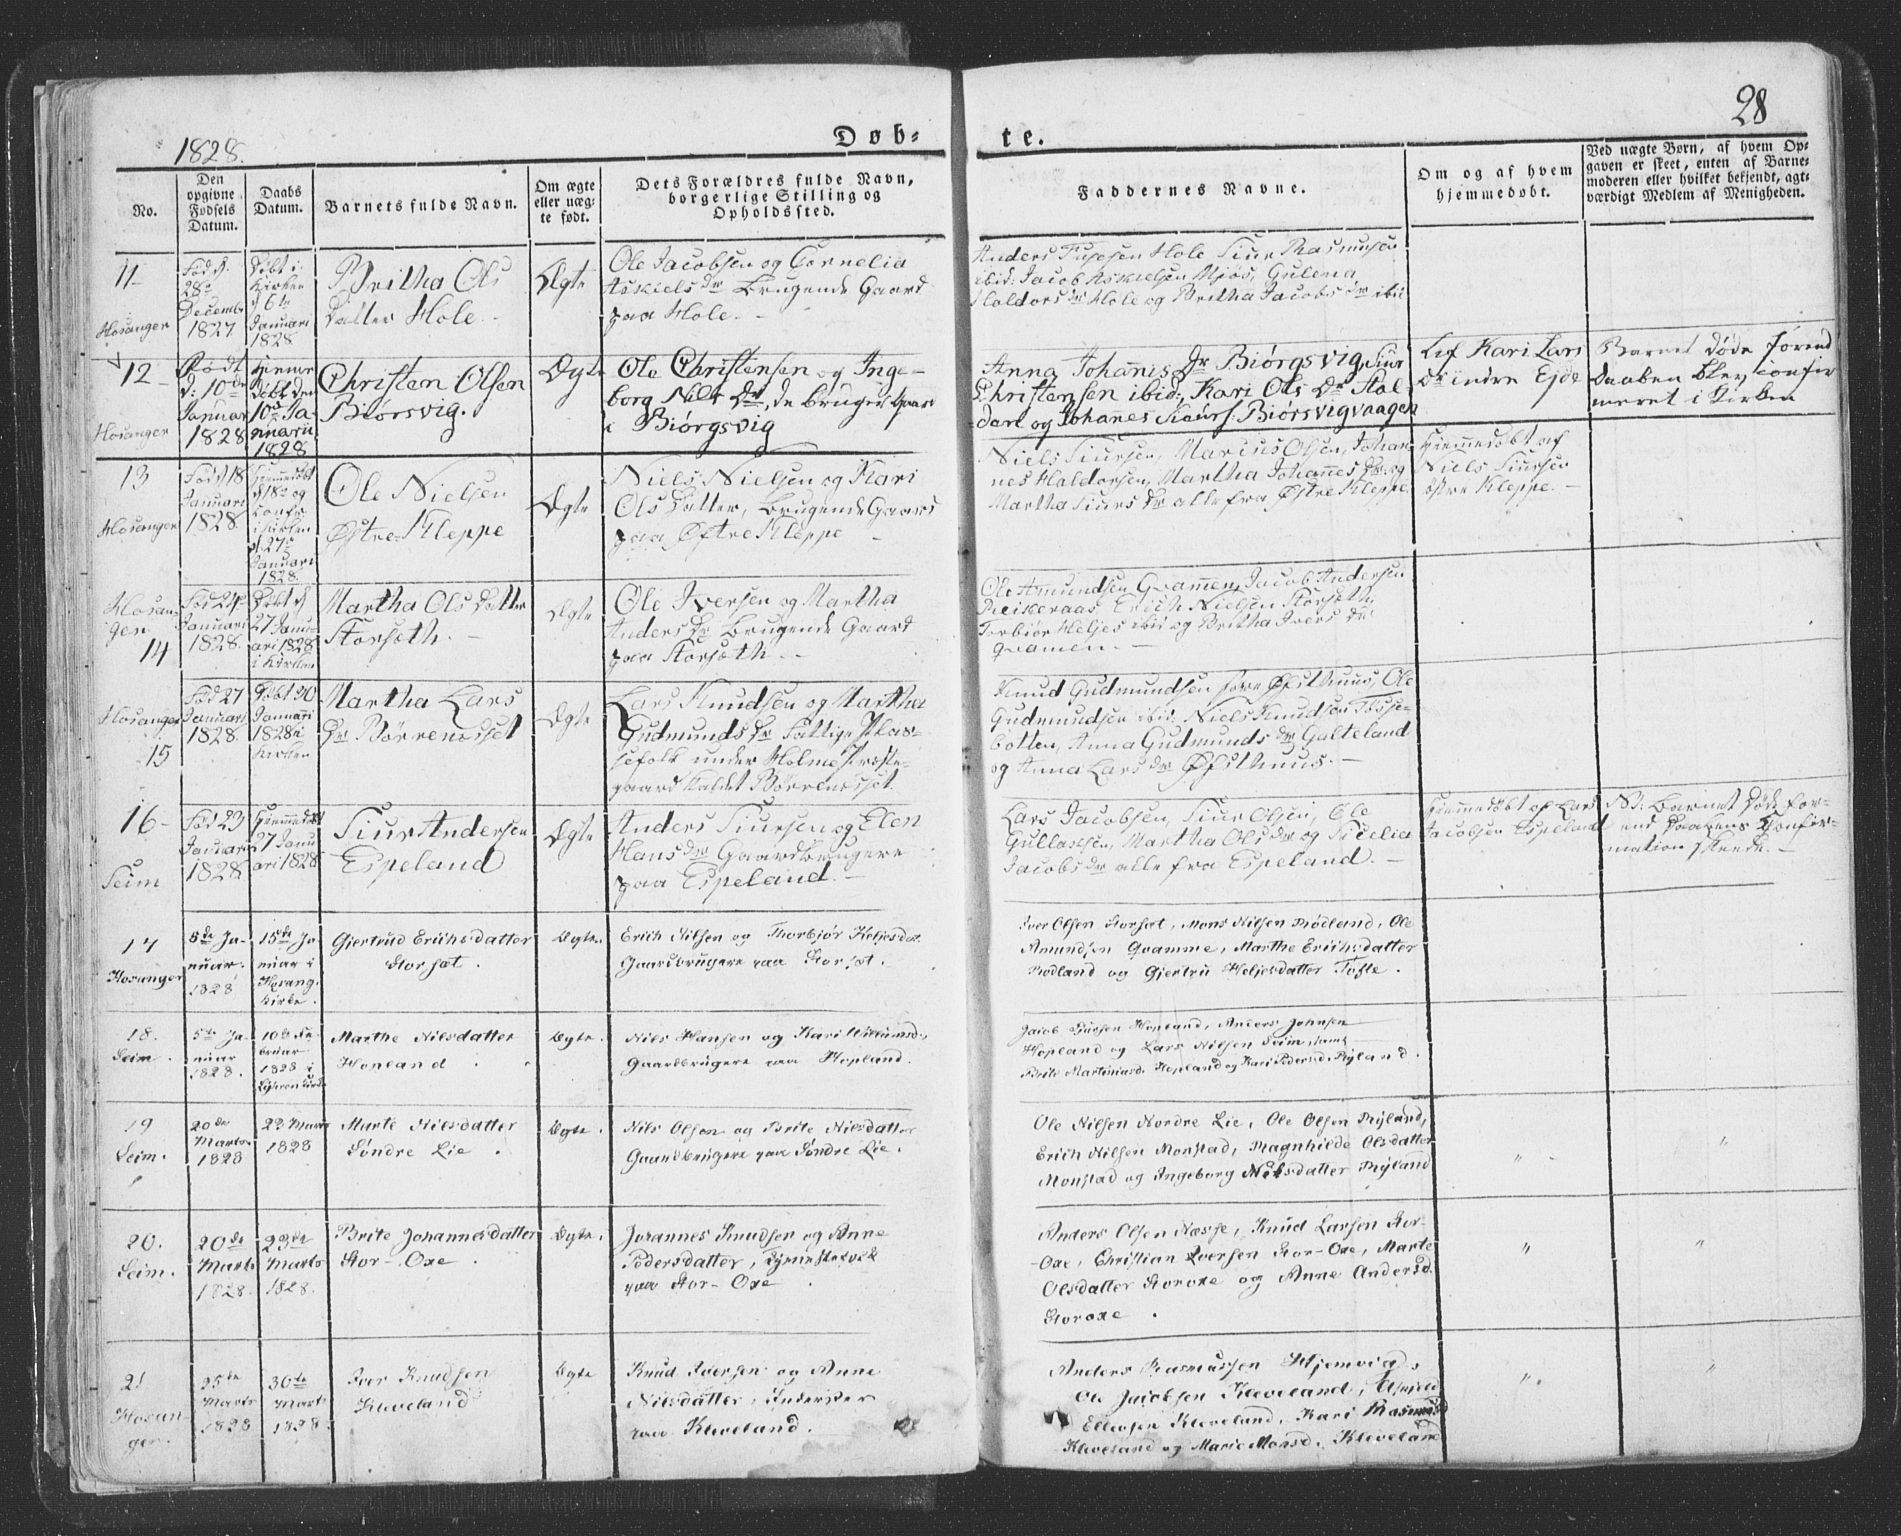 1828.
Døb-
te.
28
No.
Den opgivne Fødsels Datum.
Daabs Datum.
Barnets fulde Navn.
Om ægte eller næg-te født.
Dets Forældres fulde Navn, borgerlige Stilling og Opholdssted.
Faddernes Navne.
Om og af hvem hjemmedøbt.
Ved nægte Børn, af hvem Op-gaven er skeet, enten af Barne-moderen eller hvilket bekjendt, agt-værdigt Medlem af Menigheden.
11
Hosanger
Fød d.
28de
Decembr
1827
Døbt i
Kirken
d 6te
Januari
1828
Britha Ols
Datter Hole.
Ægte
Ole Jacobsen og Cornelia
Askiels Dr Brugende Gaard
paa Hole.
Hole Siur Rasmusen
ibid: Jacob Askielsen Mjøs, Gulena
Haldors Dr Hole og Britha Jacobs Dr ibid
12
Hosanger
Født
d: 10de
Januar
1828
Døbt den
10de Ja-
nuarii
1828
Christen Olsen
Biørsvig.
Ægte
Ole Christensen og Inge-
borg Nils Dr, de bruger Gaard
i Biørgsvig
Anna Johanis Dr Biørgsvig Siur
Christensen ibid:, Kari Ols Dr
og Johanes Biørsvigvaagen
Kari Lars
Dr indre Ejde
Barnet døde førend
Daaben blev confir
meret i Kirken
13
Hosanger
Fød 18
Januari
1828
Hjemmedøbt
d 18de og
Confr
i Kirken
d 27de
Januari
1828.
Ole Nielsen
Østre Kleppe
Ægte
Niels Nielsen og Kari
Ols Datter, Brugende Gaard
paa Østre Kleppe
Niels Siursen, Marcus Olsen, Johan-
nes Haldorsen, Martha Johannes Dr og
Martha Siurs Dr alle fra Østre Kleppe
Hjemmedøbt af
Niels Siursen
østre Kleppe.
Hosan-
ger
14
Fød 24
Januari
1828.
Døbt d
27 Janu-
ari 1828
i Kirken
Martha Ols Datter
Storsæth.
Ægte
Ole Iversen og Martha
Anders Dr Brugende Gaard
paa Storsæth.
Ole Amundsen Qvamen, Jacob Andersen
Reiskeraas, Erich Nielsen Storsæth,
Torbiør Heljes ibid og Britha Ivers Dr
Qvamen.
Hosanger
15
Fød 27
Januari
1828
Døbt 30
Januari
1828 i
Kirken
Martha Lars
Dr Børrenæsset
Ægte
Lars Knudsen og Martha
Gudmunds Dr Fattige Plas-
sefolk under Holme Præste-
gaard Kaldet Børrenesset.
Knud Gudmundsen Øfsthuus, Ole
Gudmundsen ibid, Niels Knudsen Tosse-
botten, Anna Gudmunds Dr Galteland
og Anna Lars Dr Øfsthuus.
16
Seim
Fød 23
Januari
1828
Hjemmedøbt
27 Janu
ari 1828
Siur Andersen
Espeland
Ægte
Anders Siursen og Elen
Hans Dr Gaardbrugere
paa Espeland.
Lars Jacobsen, Siur Olsen, Ole
Gullaksen, Martha Ols Dr og Siselia
Jacobs Dr alle fra Espeland.
Hjemmedøbt af Lars
Jacobsen Espeland
NB: Barnet døde for-
end Daabens Confir-
mation skeede.
17
Hosanger
5de Ja-
nuar.
1828
15de Ja-
nuar i
Hosang.
Kirke.
Gjertrud Erichsdatter
Storsæt.
Ægte.
Erich Nilsen og Thorbjør Heljesdtr
Gaardbrugere paa Storsæt.
Iver Olsen Storsæt, Mons Nilsen Rødland, Ole
Amundsen Qvamme, Marthe Erichsdatter
Rødland og Gjertru Heljesdatter Tofte.
18.
Seim.
5te Ja-
nuar
1828.
10de Fe
bruar
1828 i
Marthe Nilsdatter
Hopland.
Ægte.
Nils Hansen og Kari
Gaardbrugere paa Hopland.
Jacob Hopland, Anders Johnsen
Hopland og Lars Nilsen Seim, samt
Brite Hopland og Kari Pedersd. Ryland.
19
Seim.
20de
Marts
1828
23 Marts
1828
Marte Nilsdatter
Søndre Lie.
Ægte.
Nils Olsen og Brite Nilsdatter
Gaardbrugere paa Søndre Lie.
Ole Nilsen Nordre Lie, Ole Olsen Ryland,
Erich Nilsen Monstad, Magnhilde Olsdatter
Monstad og Ingeborg Nilsdatter Ryland
"
"
20.
Seim.
20de
Marts
1828.
23de
Marts
1828.
Brite Johannesdatter
Stor-Oxe.
Ægte.
Johannes Knudsen og Anne
Pedersdatter, Tjenestefolk
paa Stor-Oxe.
Anders Olsen Næsse, Knud Larsen Stor-
Oxe, Christian Iversen Stor-Oxe, Marte
Olsdatter Storoxe og Anne Andersd.
Storoxe.
"
"
21
Hosan-
ger.
25de
Marts
1828
30te
Marts
1828.
Iver Knudsen
Kleveland
Ægte
Knud Iversen og Anne
Nilsdatter, Inderster
paa Kleveland.
Anders Rasmussen Hjemvig,
Ole Jacobsen Kleveland,
Ellevsen Kleveland, Kari Rasmusd
Kleveland og Marie Monsd. Kleveland
"
"